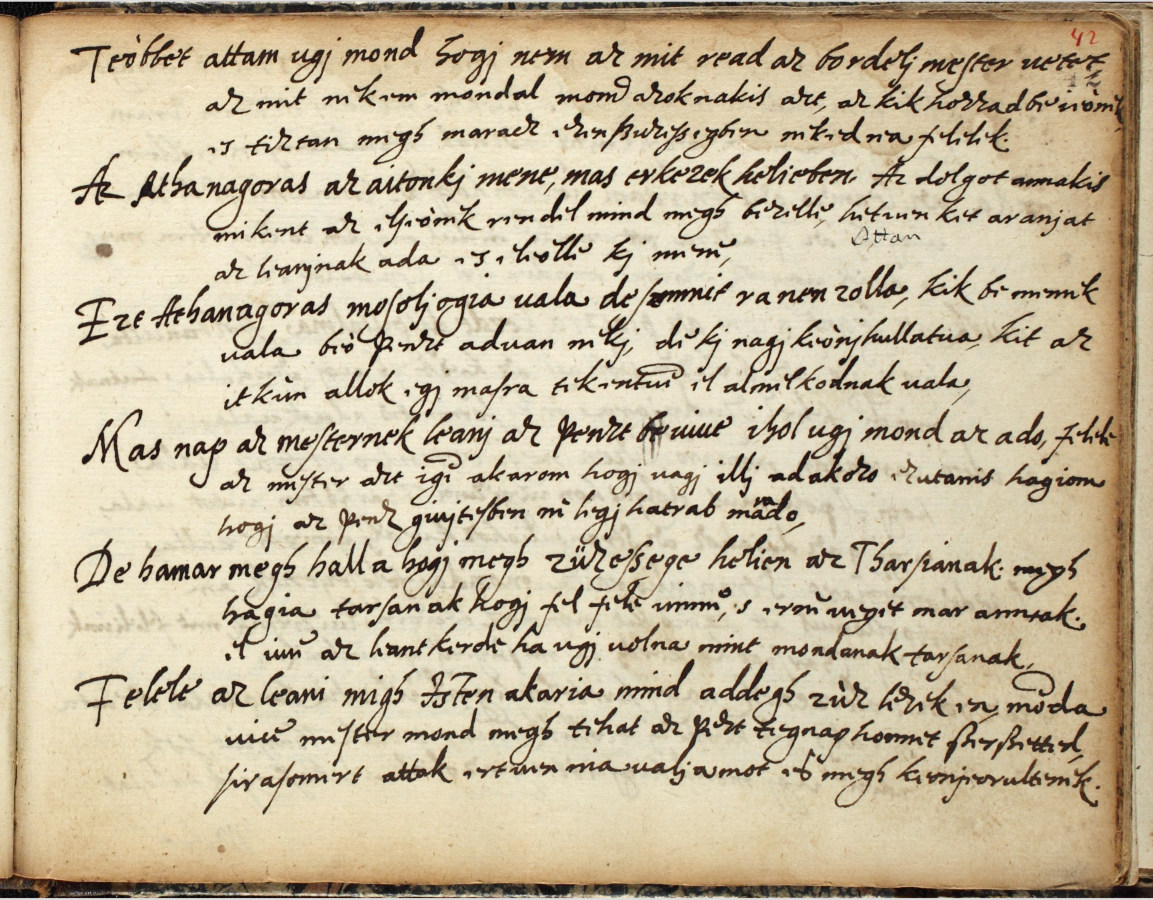 42
Teòbbet attam ugj mond hogj nem az mit read az bordelj mester vetet
az mit nekem mondal mond azoknakis azt, az kik hozzad be
es tiztan megh maradz ezen felelek.
Az Athanagoras az aitonkj mene, mas erkezek helieben. Az dolgot annakis
mikent az elseònek rendel mind megh bezelle, hetven ket aranjat
Attan
az leanjnak ada es elolle kj mene,
Eze Athanagoras mosoljogia vala de semmit ra nen zolla, kik be mennek
vala beò penzt advan nekj, de kj nagj keònjhullatva, kit az
itkün allok egj masra tekentven el almelkodnak vala,
Mas nap az mesternek leanj az penzt be vive ihol ugj mond az ado, felele
az mester azt igen akarom hogj vagj illj adakozo ezutanis hagiom
hogj az penz giujtesben ne legj hatrab mado,
De hamar megh halla hogj megh züzessege helien az Tharsianak. megh
hagia tarsanak hogj fel fele vinne, s erre veget mar annak.
el vive az leant kerde ha ugj volna mint mondanak tarsanak,
Felele az leani migh Isten akaria mind addegh züz lezek en, monda
vice mester mond megh tehat az penzt tegnap honnet
sirasomert attak ertven nia valjamot es megh keonjeorultenek.